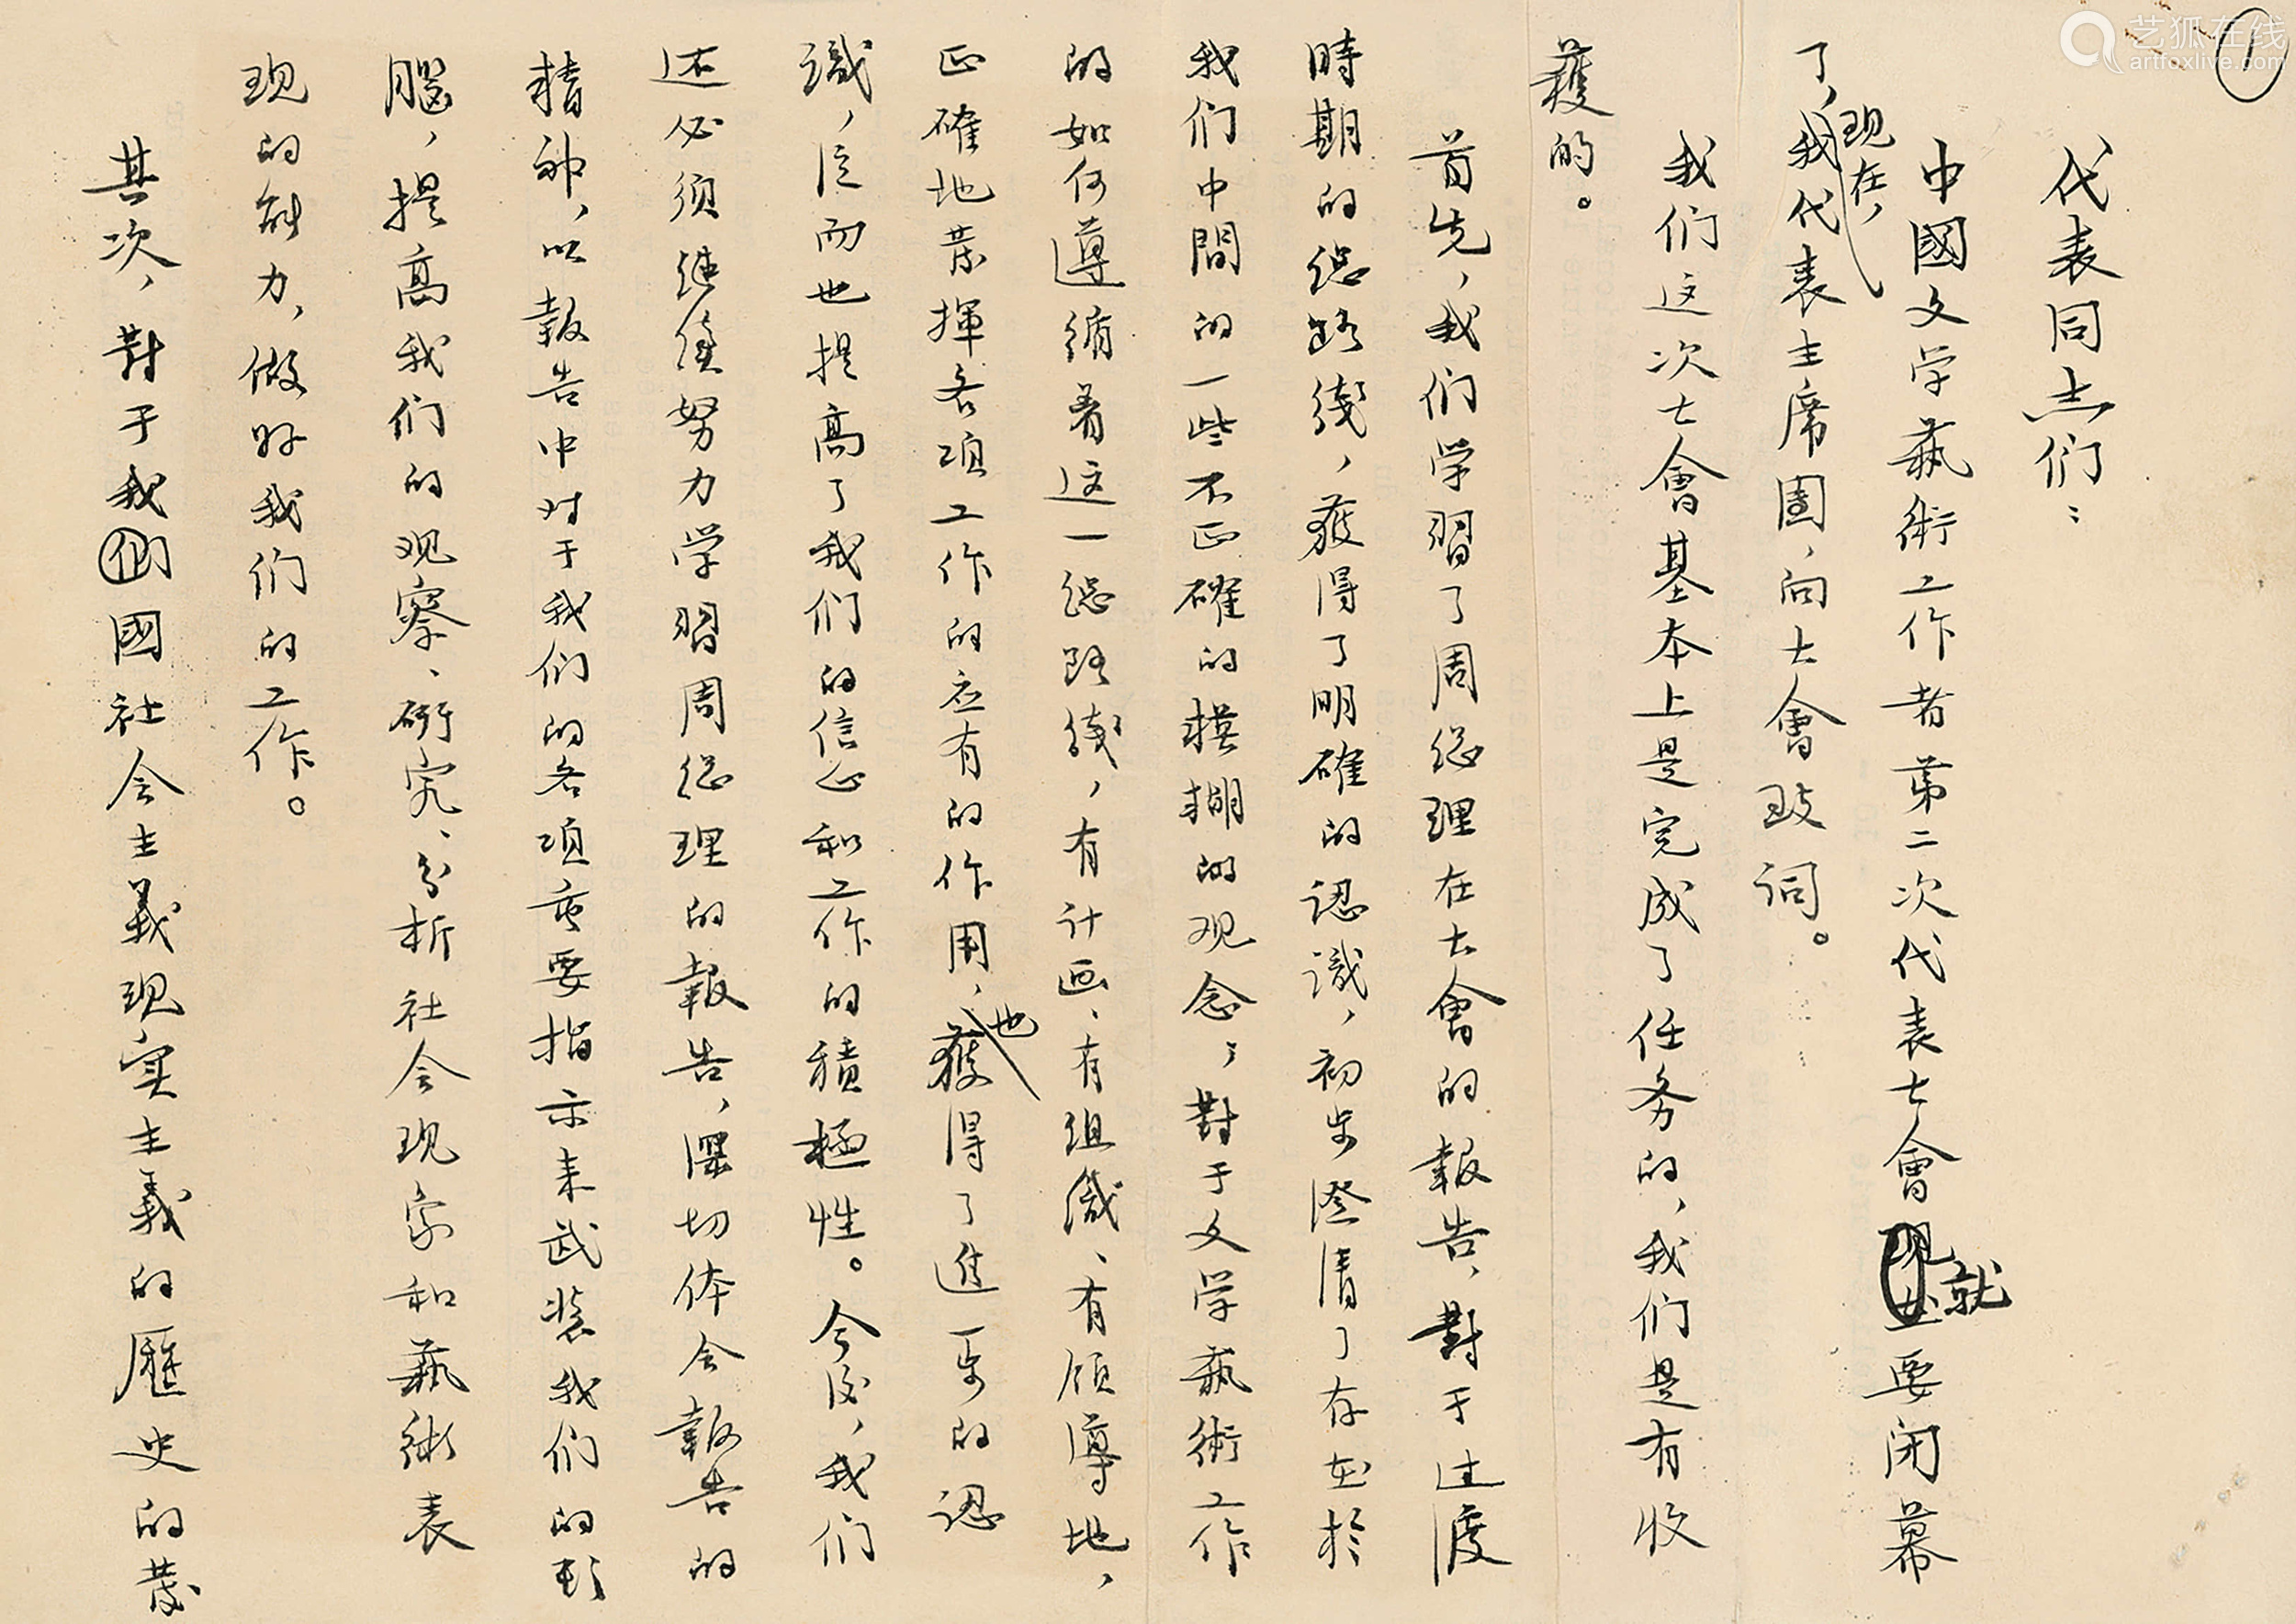 艺狐在线
artfoxlive.com
一
代表同志们：
中國文学藝術工作者第二次代表大會就要闭幕
了，现在，我代表主席團，向大會致詞。
我们这次大會基本上是完成了任务的，我们是有收
獲的。
首先，我们学習了周總理在大會的報告，對于过渡
時期的總路綫，獲得了明確的認識，初步澄清了存在於
我们中間的一些不正確的模糊的观念；對于文学藝術工作
的如何遵循着这一總路綫，有计画、有组織、有領導地，
正確地發揮各項工作的应有的作用，也獲得了進一步的認
識，从而也提高了我们的信心和工作的積極性。今后，我们
还必须继續努力学習周總理的報告，深切体会報告的
精神，以報告中对于我们的各項重要指示来武装我们的头
腦，提高我们的观察、研究、分析社会现象和藝術表
现的能力，做好我们的工作。
其次，對于我們國社会主義现实主義的歷史的發